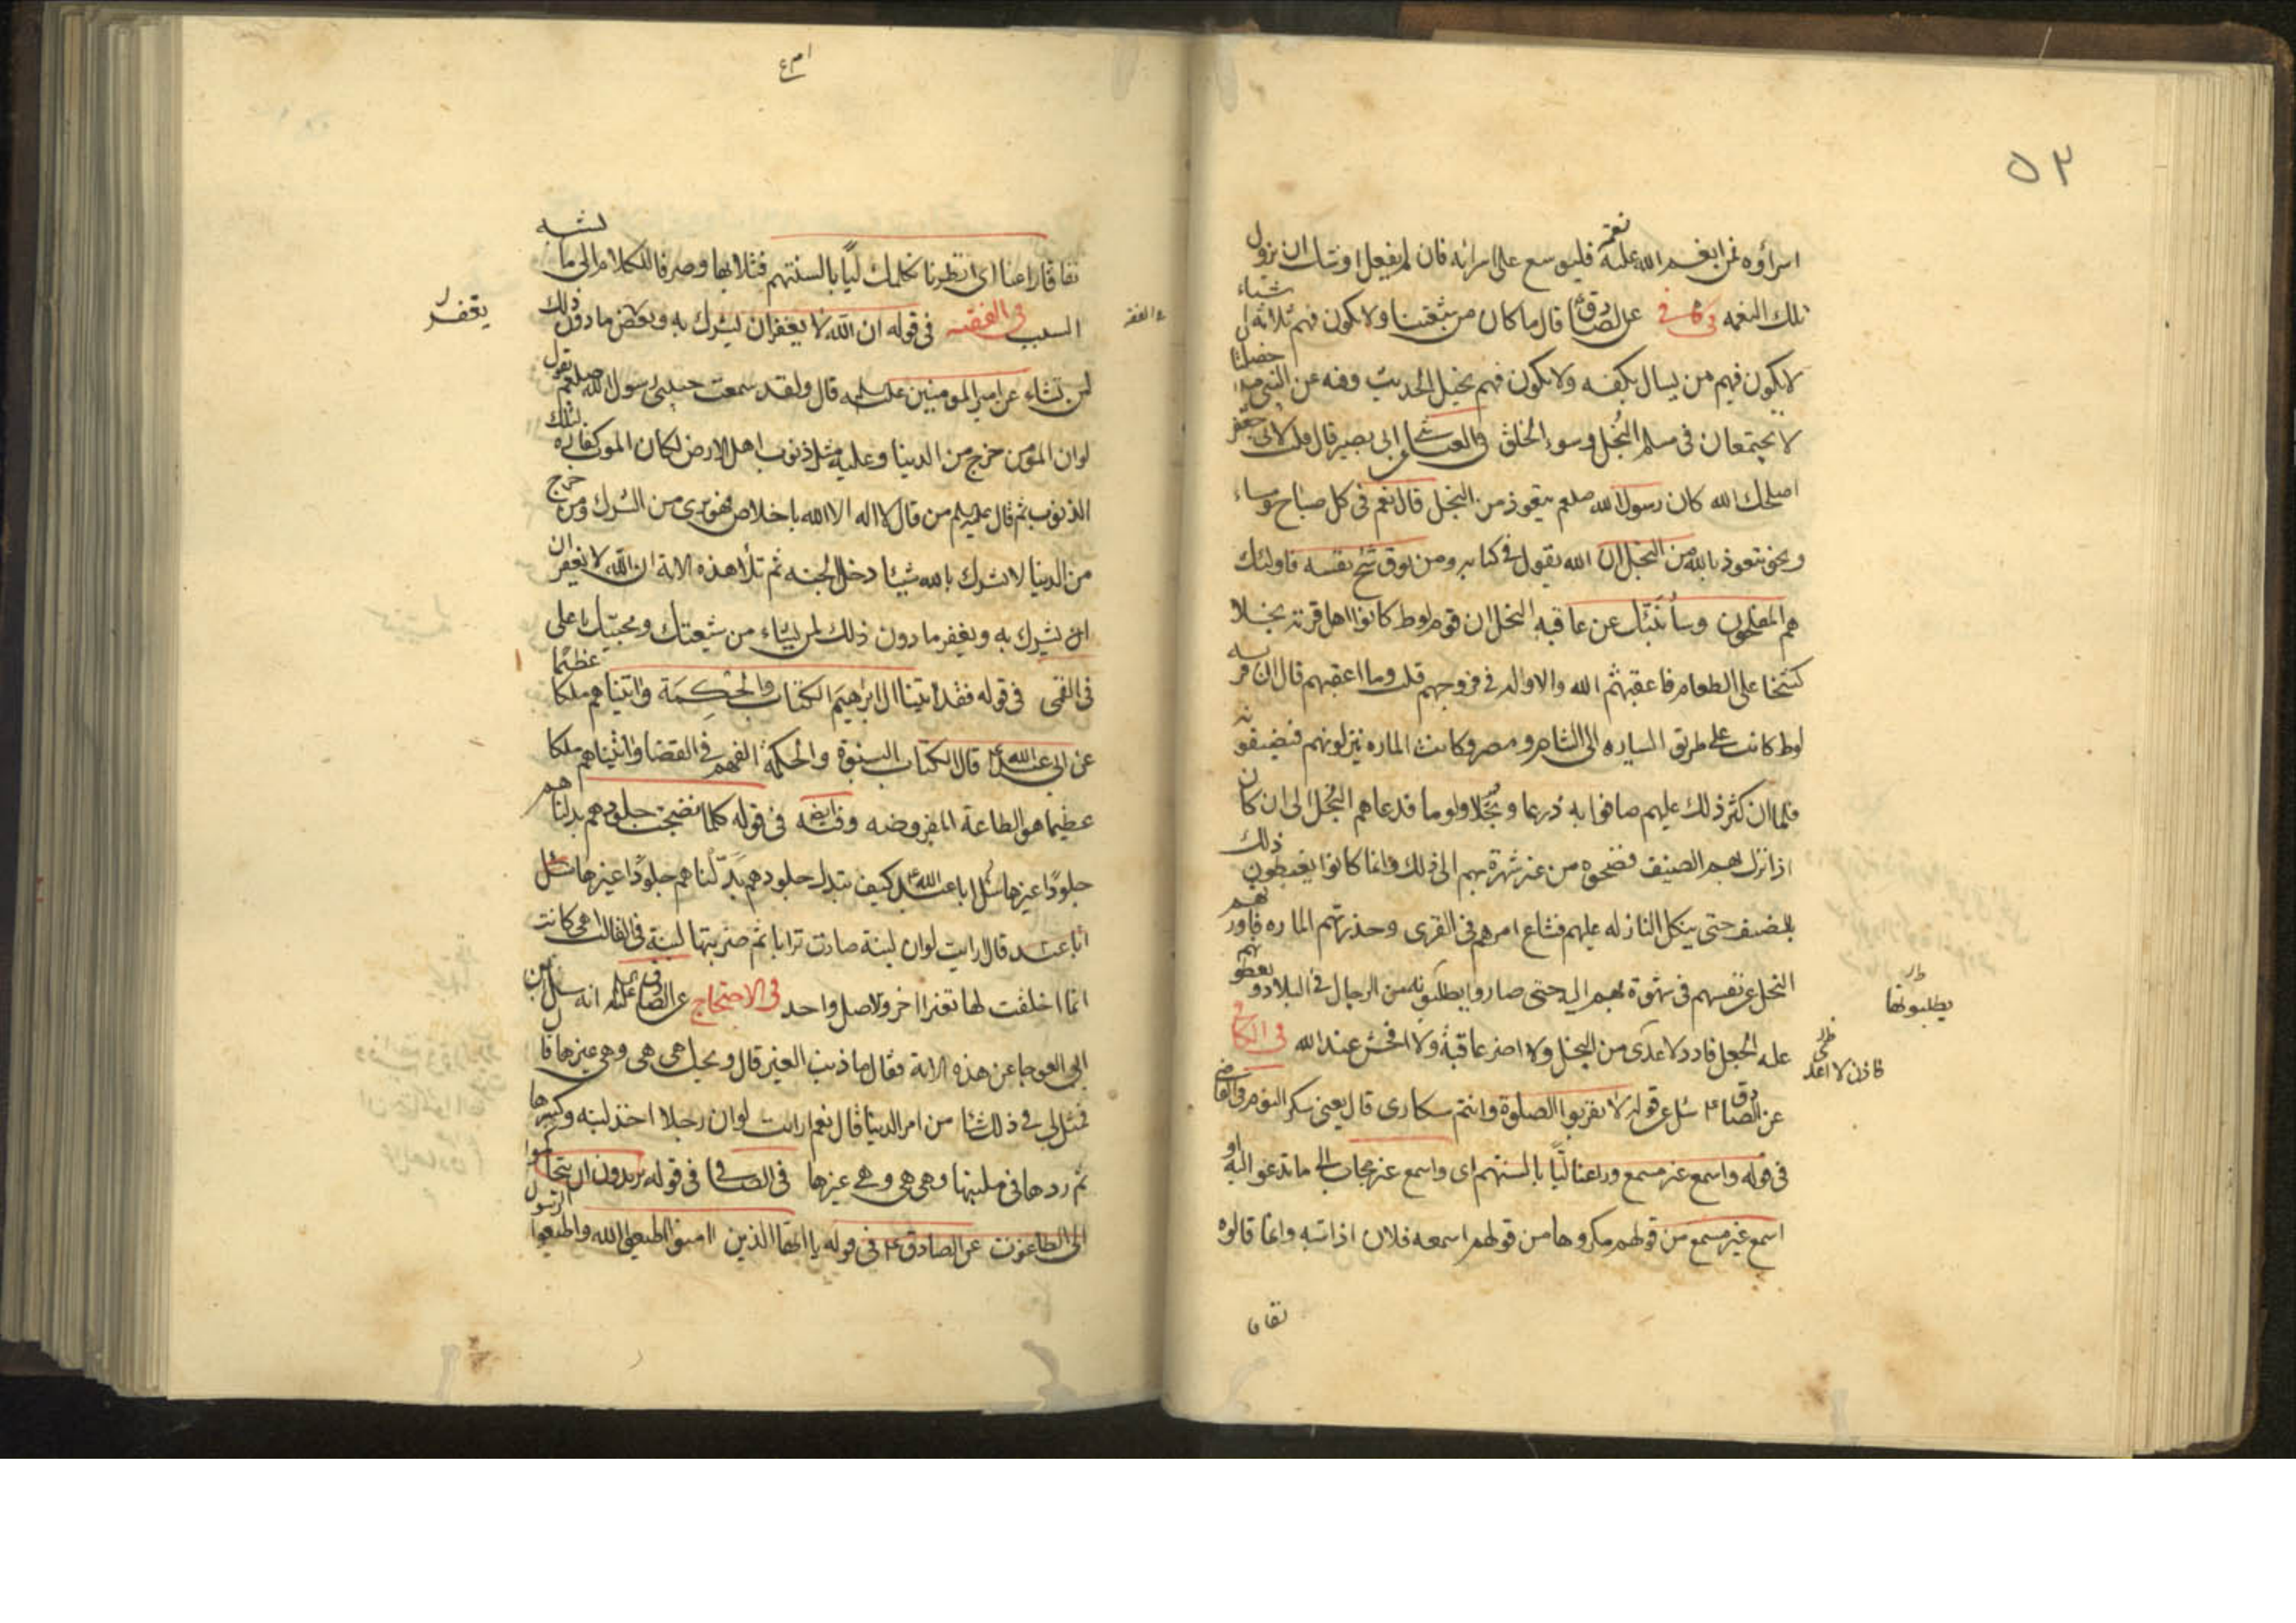 ٥٣
اسراؤه فمن انعم الله عليه نعمة فليوسع على اسرائه فان لم يفعل اوشك ان تزول
تلك النعمه فى كافى عن الصادق ع قال ما كان من شيعتنا ولا يكون فيهم ثلاثة اشياء
لا يكون فيهم من يسال بكفه ولا يكون فيهم بخيل الحديث وفيه عن النبى ص خصلتا
لا يجتمعان فى مسلم البخل وسوء الخلق فى العياشى ابى بصير قال قلت لابى جعفر
اصلحك الله كان رسول الله صلعم يتعوذ من البخل قال نعم فى كل صباح ومساء
ونحن نتعوذ بالله من البخل ان الله يقول فى كتابه ومن يوق شح نفسه فاولئك
هم المفلحون وسأنبئك عن عاقبه البخل ان قوم لوط كانوا اهل قرية بخلا
شحا على الطعام فاعقبهم الله داء لا دواء له فى فروجهم قلت وما اعقبهم قال ان قريه
لوط كانت على طريق السياره الى الشام ومصر وكانت الماره ينزلون بهم فيضيفونه
فلما ان كثر ذلك عليهم ضاقوا به ذرعا وبخلا ولوما فدعاهم البخل الى ان كان
اذا نزل بهم الضيف فضحوه من غير شهوة بهم الى ذلك وانما كانوا يفعلون ذلك
بالضيف حتى ينكل النازله عليهم فشاع امرهم فى القرى وحذرتهم الماره فاورثهم
البخل عن نفسهم فى شهوة بهم اليه حتى صاروا يطلبونه من الرجال فى البلاد ويعطونهم
يطلبونها
عليه الجعل فاى داء اعدى من البخل ولا اضر عاقبة ولا افحش عند الله فى الكافى
عن الصادق ع سئل عن قوله لا تقربوا الصلوة وانتم سكارى قال يعنى سكر النوم فى القاضى
فى قوله واسمع غير مسمع وراعنا ليا بالسنتهم اى واسمع غير مجاب الى ما تدعو اليه او
اسمع غير مسمع من قولهم مكروها من قولهم اسمعه فلان اذا سبه وانما قالوه
نفاقا
نفاقا راعنا اى انظرنا نكلمك ليا بالسنتهم فتلا بها وصرفا للكلام الى ما يشبه
السب فى الفقيه فى قوله ان الله لا يغفر ان يشرك به ويغفر ما دون ذلك
يغفر
لمن يشاء عن امير المومنين عليه السلم قال ولقد سمعت حبيبى رسول الله صلعم يقول
لو ان المؤمن خرج من الدنيا وعليه مثل ذنوب اهل الارض لكان الموت كفارة لتلك
الذنوب ثم قال عليه السلم من قال لا اله الا الله باخلاص فهو برى من الشرك ومن خرج
من الدنيا لا يشرك بالله شيئا دخل الجنه ثم تلا هذه الاية ان الله لا يغفر ان
ان يشرك به ويغفر ما دون ذلك لمن يشاء من شيعتك ومحبيك يا على
فى القمى فى قوله فقد اتينا ال ابرهيم الكتاب والحكمة واتيناهم ملكا عظيما
عن ابى عبد الله ع قال الكتاب النبوة والحكمة الفهم فى القضا واتيناهم ملكا
عظيما هو الطاعة المفروضه وفيه فى قوله كلما نضجت جلودهم بدلناهم
جلودا غيرها سئل ابا عبد الله ع كيف تبدل جلودهم بدلناهم جلودا غيرها سئل
ابا عبد قال ارايت لو ان لبنة صارت ترابا ثم ضربتها لبنة فى القالب اهى كانت
انما اخلفت لها تغيرا اخر والاصل واحد فى الاحتجاج عن الصادق عليه انه سال ابن
ابى العوجا عن هذه الاية فقال ما ذنب الغير قال ويحك هى هى وهى غيرها قال
فمثل لى فى ذلك شيئا من امر الدنيا قال نعم ارايت لو ان رجلا اخذ لبنه وكسرها
ثم ردها فى ملبنها وهى هى وهى غيرها فى الصافى فى قوله يريدون ان يتحاكموا
الى الطاغوت عن الصادق ع فى قوله يا ايها الذين امنوا اطيعوا الله واطيعوا الرسول